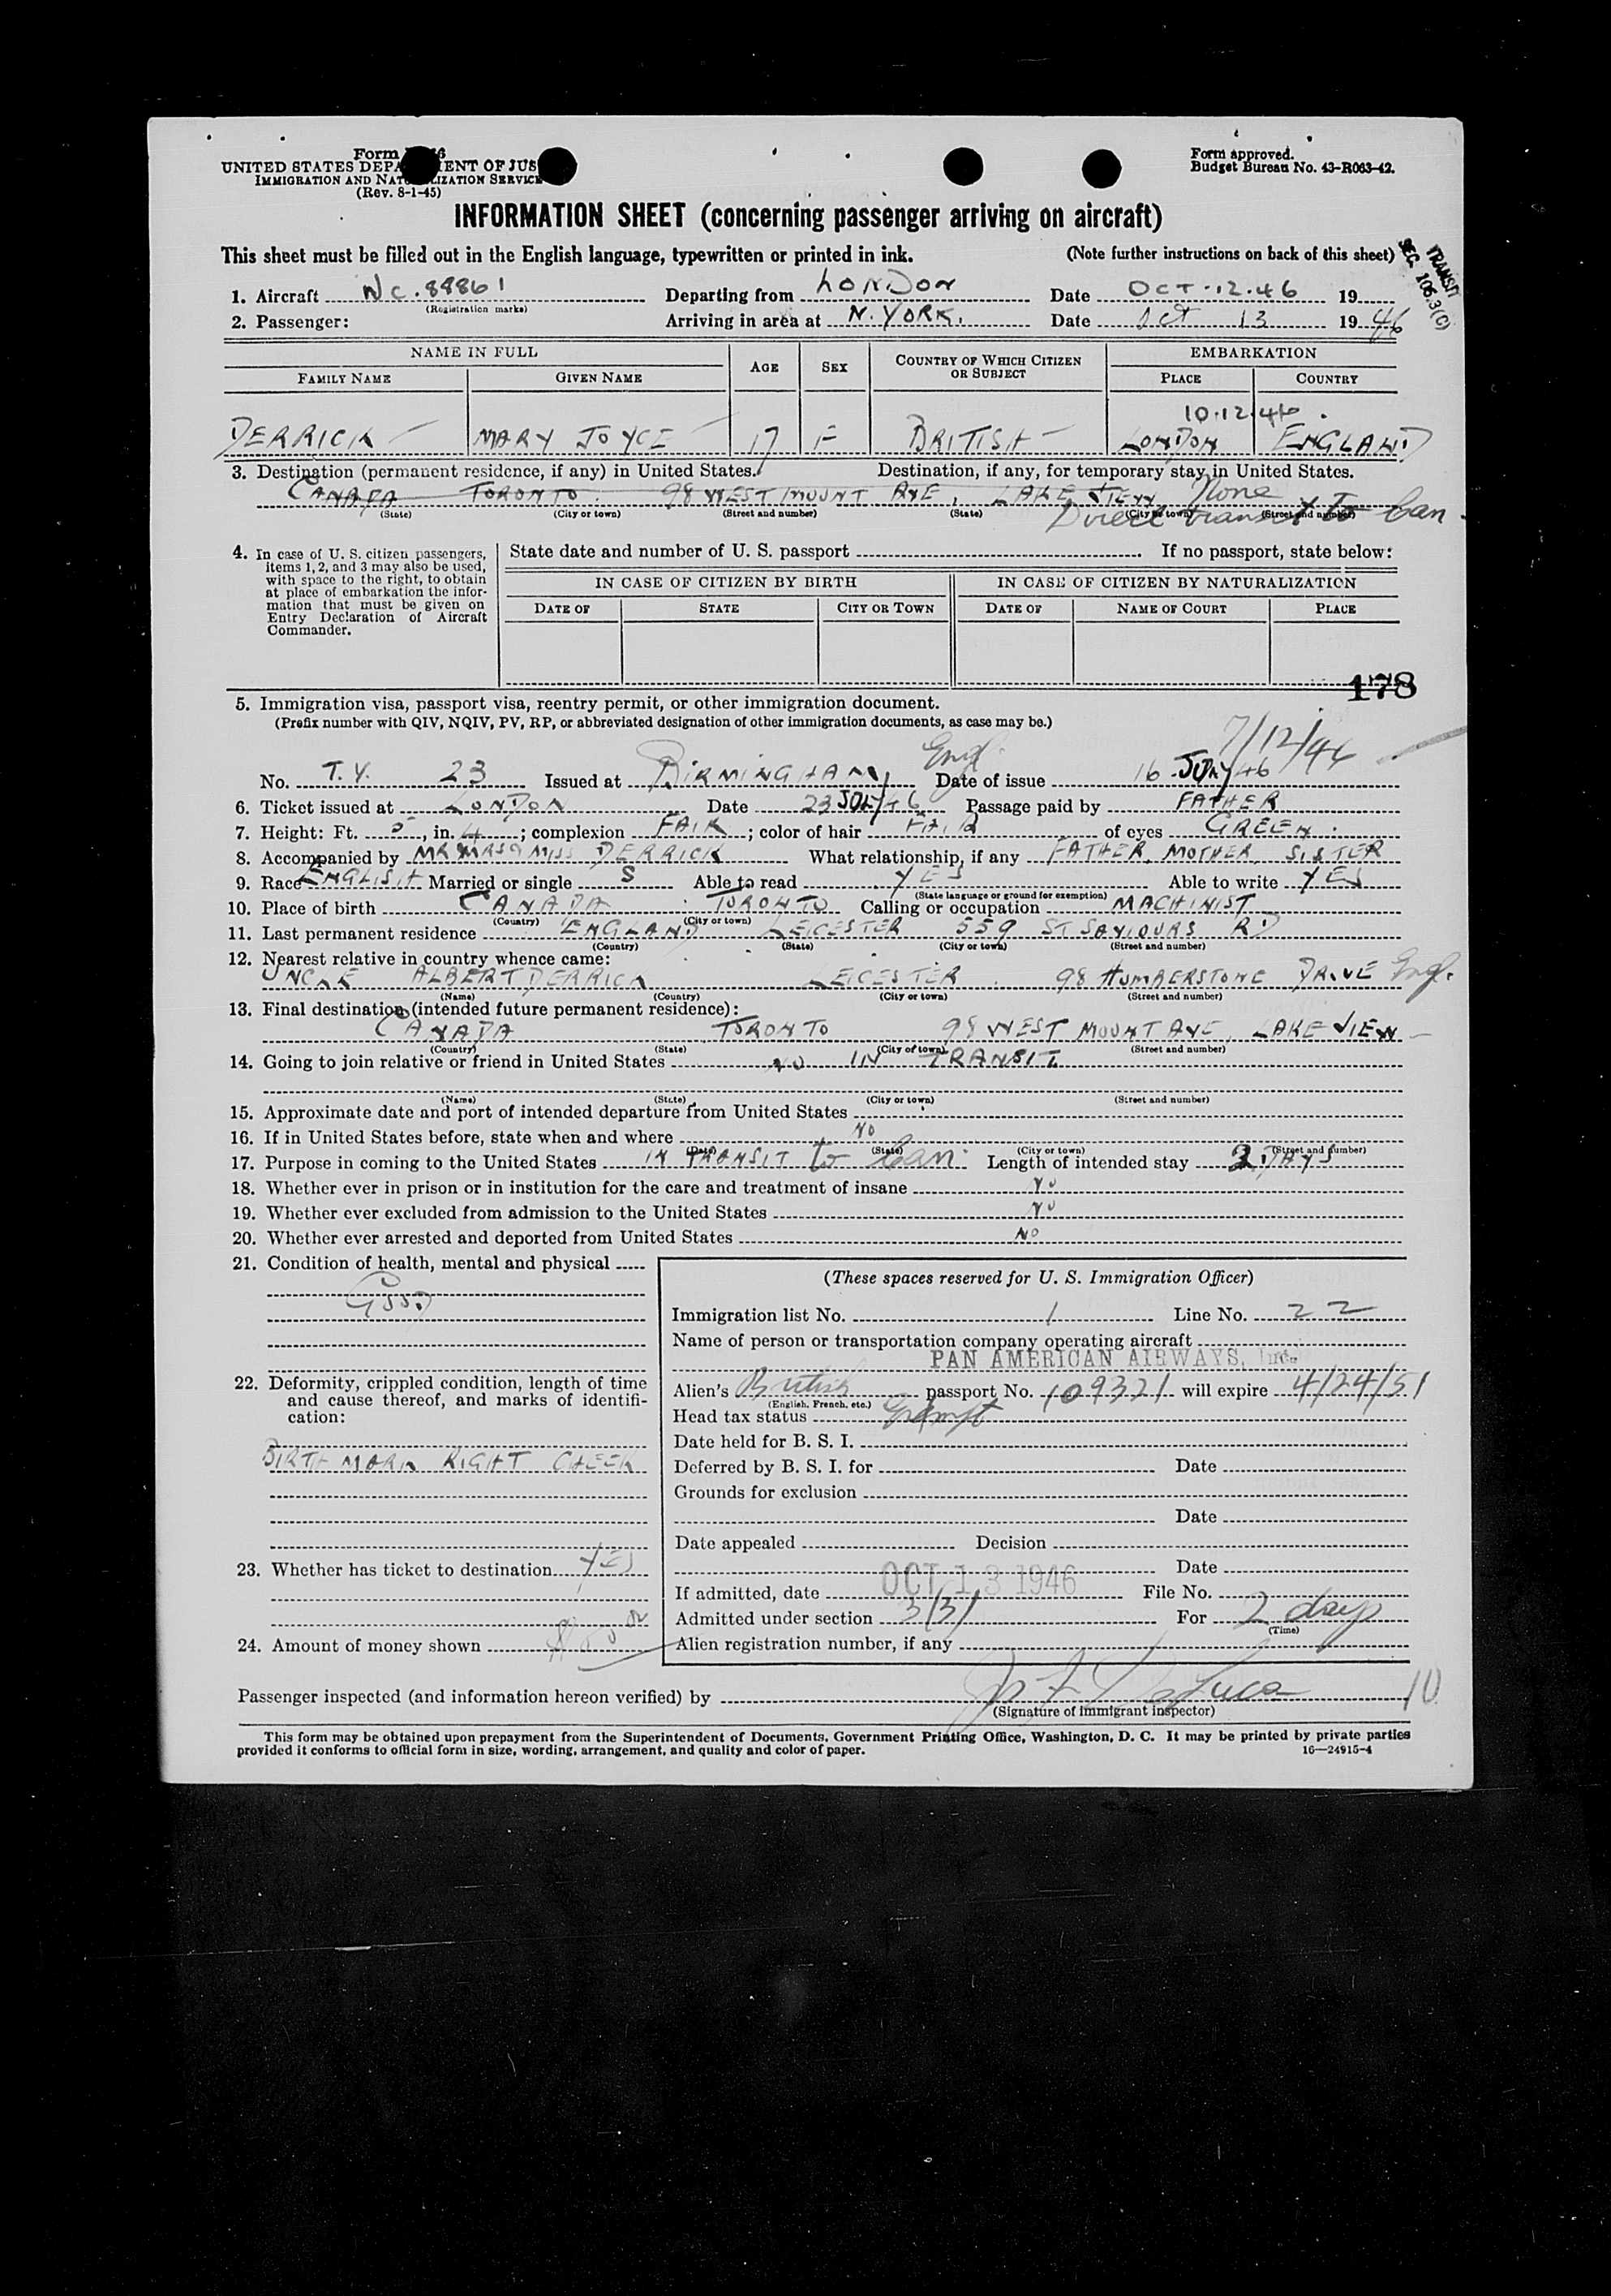 Form
UNITED STATES DEPA ENT OF JUS
IMMIGRATION AND NAT LIZATION SERVICE
(Rev. 8-1-45)
Form approved.
Budget Bureau No. 43-R063-42.
INFORMATION SHEET (concerning passenger arriving on aircraft)
This sheet must be filled out in the English language, typewritten or printed in ink. (Note further instructions on back of this sheet)
TRANSIT
SEC. 106.3(C)
1. Aircraft NC.88861 Departing from LONDON Date OCT.12.46 19
(Registration marks)
2. Passenger: Arriving in area at N. YORK. Date Oct 13 1946
NAME IN FULL AGE SEX COUNTRY OF WHICH CITIZEN OR SUBJECT EMBARKATION
FAMILY NAME GIVEN NAME PLACE COUNTRY
10.12.46.
DERRICK MARY JOYCE 17 F BRITISH LONDON ENGLAND
3. Destination (permanent residence, if any) in United States. Destination, if any, for temporary stay in United States.
CANADA TORONTO. 98 WEST MOUNT AVE, LAKE VIEW None
(State) (City or town) (Street and number) (State) (City or town) (Street and number)
Direct transit to Can.
4. In case of U. S. citizen passengers, items 1, 2, and 3 may also be used, with space to the right, to obtain at place of embarkation the information that must be given on Entry Declaration of Aircraft Commander.
State date and number of U. S. passport If no passport, state below:
IN CASE OF CITIZEN BY BIRTH IN CASE OF CITIZEN BY NATURALIZATION
DATE OF STATE CITY OR TOWN DATE OF NAME OF COURT PLACE
178
5. Immigration visa, passport visa, reentry permit, or other immigration document.
(Prefix number with QIV, NQIV, PV, RP, or abbreviated designation of other immigration documents, as case may be.)
7/12/46
Engl.
No. T.V. 23 Issued at BIRMINGHAM, Date of issue 16 JULY 46
6. Ticket issued at LONDON Date 23 JULY 46 Passage paid by FATHER
7. Height: Ft. 5, in. 4; complexion FAIR; color of hair FAIR of eyes GREEN.
8. Accompanied by MR MRS & MISS DERRICK What relationship, if any FATHER, MOTHER, SISTER
9. Race ENGLISH Married or single S Able to read YES Able to write YES
(State language or ground for exemption)
10. Place of birth CANADA TORONTO Calling or occupation MACHINIST
(Country) (City or town)
11. Last permanent residence ENGLAND LEICESTER 559 ST SAVIOURS RD
(Country) (State) (City or town) (Street and number)
12. Nearest relative in country whence came:
UNCLE ALBERT DERRICK LEICESTER 98 HUMBERSTONE DRIVE Engl.
(Name) (Country) (City or town) (Street and number)
13. Final destination (intended future permanent residence):
CANADA TORONTO 98 WEST MOUNT AVE, LAKE VIEW
(Country) (State) (City or town) (Street and number)
14. Going to join relative or friend in United States NO IN TRANSIT
(Name) (State) (City or town) (Street and number)
15. Approximate date and port of intended departure from United States
16. If in United States before, state when and where NO
(Date) (State) (City or town) (Street and number)
17. Purpose in coming to the United States IN TRANSIT to Can. Length of intended stay 2 DAYS
18. Whether ever in prison or in institution for the care and treatment of insane NO
19. Whether ever excluded from admission to the United States NO
20. Whether ever arrested and deported from United States NO
21. Condition of health, mental and physical
GOOD
22. Deformity, crippled condition, length of time and cause thereof, and marks of identification:
BIRTH MARK RIGHT CHEEK
23. Whether has ticket to destination YES
24. Amount of money shown
(These spaces reserved for U. S. Immigration Officer)
Immigration list No. 1 Line No. 22
Name of person or transportation company operating aircraft
PAN AMERICAN AIRWAYS, Inc.
Alien's British passport No. 109321 will expire 4/24/51
(English, French, etc.)
Head tax status Exempt
Date held for B. S. I.
Deferred by B. S. I. for Date
Grounds for exclusion
Date
Date appealed Decision
Date
If admitted, date OCT 13 1946 File No.
Admitted under section 3/3/ For 2 days
(Time)
Alien registration number, if any
Passenger inspected (and information hereon verified) by
10
(Signature of immigrant inspector)
This form may be obtained upon prepayment from the Superintendent of Documents, Government Printing Office, Washington, D. C. It may be printed by private parties
provided it conforms to official form in size, wording, arrangement, and quality and color of paper. 16—24915-4